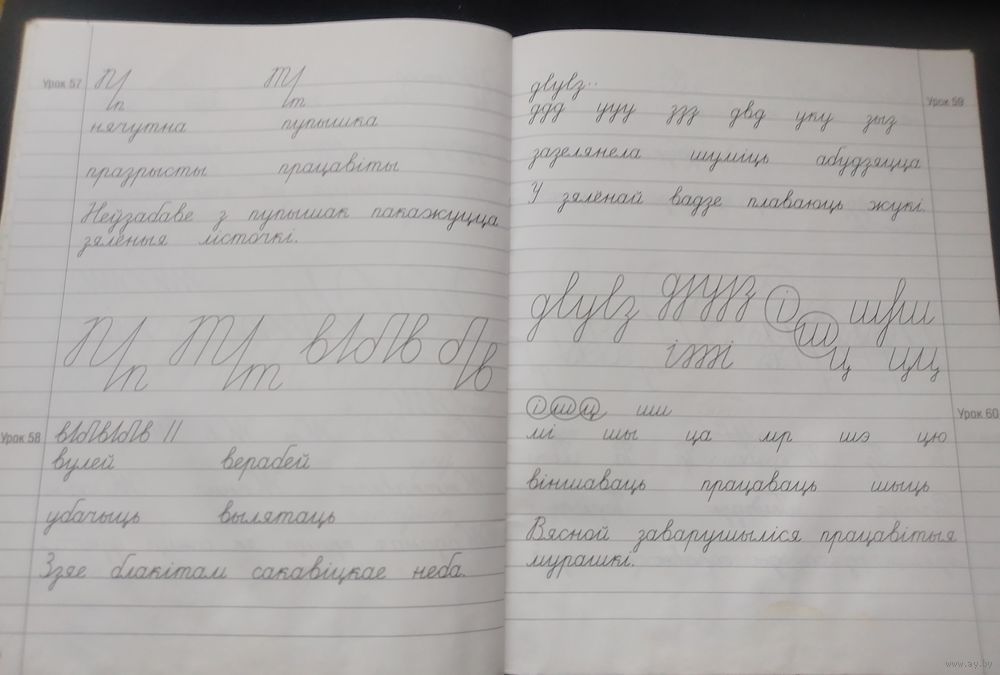 Урок 57
П Т
п т
нячутна пупышка
празрысты працавіты
Неўзабаве з пупышак пакажуцца
зялёныя лісточкі.
П Т
п т
Урок 58
вулей верабей
убачыць вылятаць
Ззяе блакітам сакавіцкае неба.
двувз..
Урок 59
ддд ууу ззз двд уку зыз
зазелянела шуміць абудзяцца
У зялёнай вадзе плаваюць жукі.
двувз
і ш
ц
Урок 60
і ш ц иш
мі шы ца мр шэ цю
віншаваць працаваць шыць
Вясной заварушыліся працавітыя
мурашкі.
www.ay.by